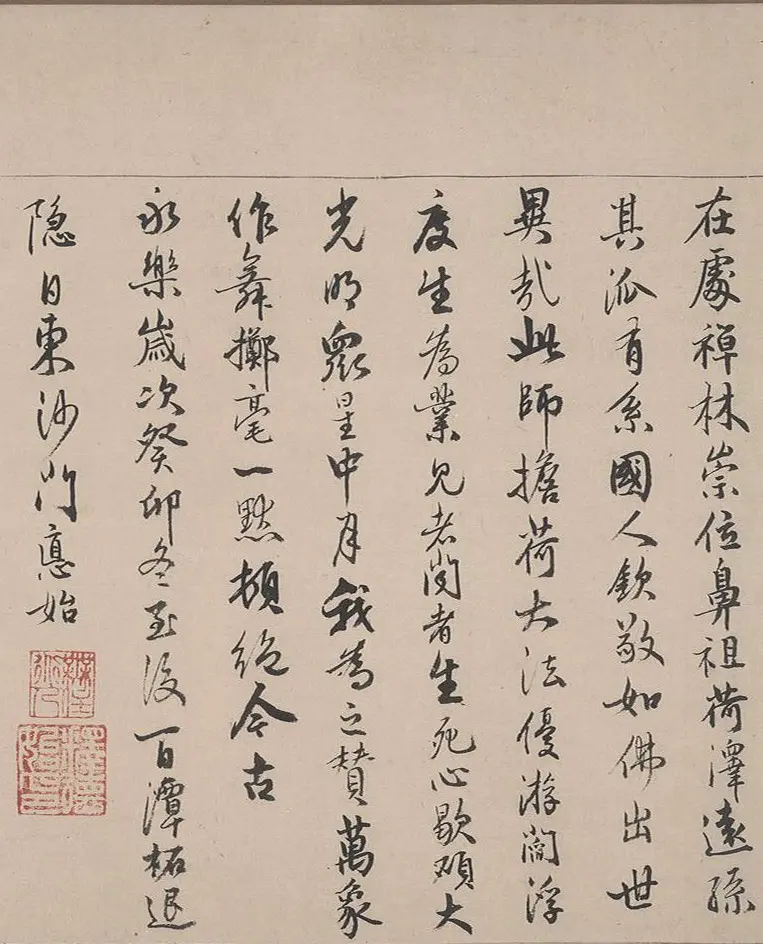 在處禅林崇位鼻祖荷澤遠孫
其派有系國人欽敬如佛出世
異哉此師擔荷大法優游閻浮
度生為業見者聞者生死心歇碩大
光明衆星中月我為之賛萬象
作舞擲毫一點頓絶今古
永樂歲次癸卯冬至後一日潭柘退
隐日東沙門悳始